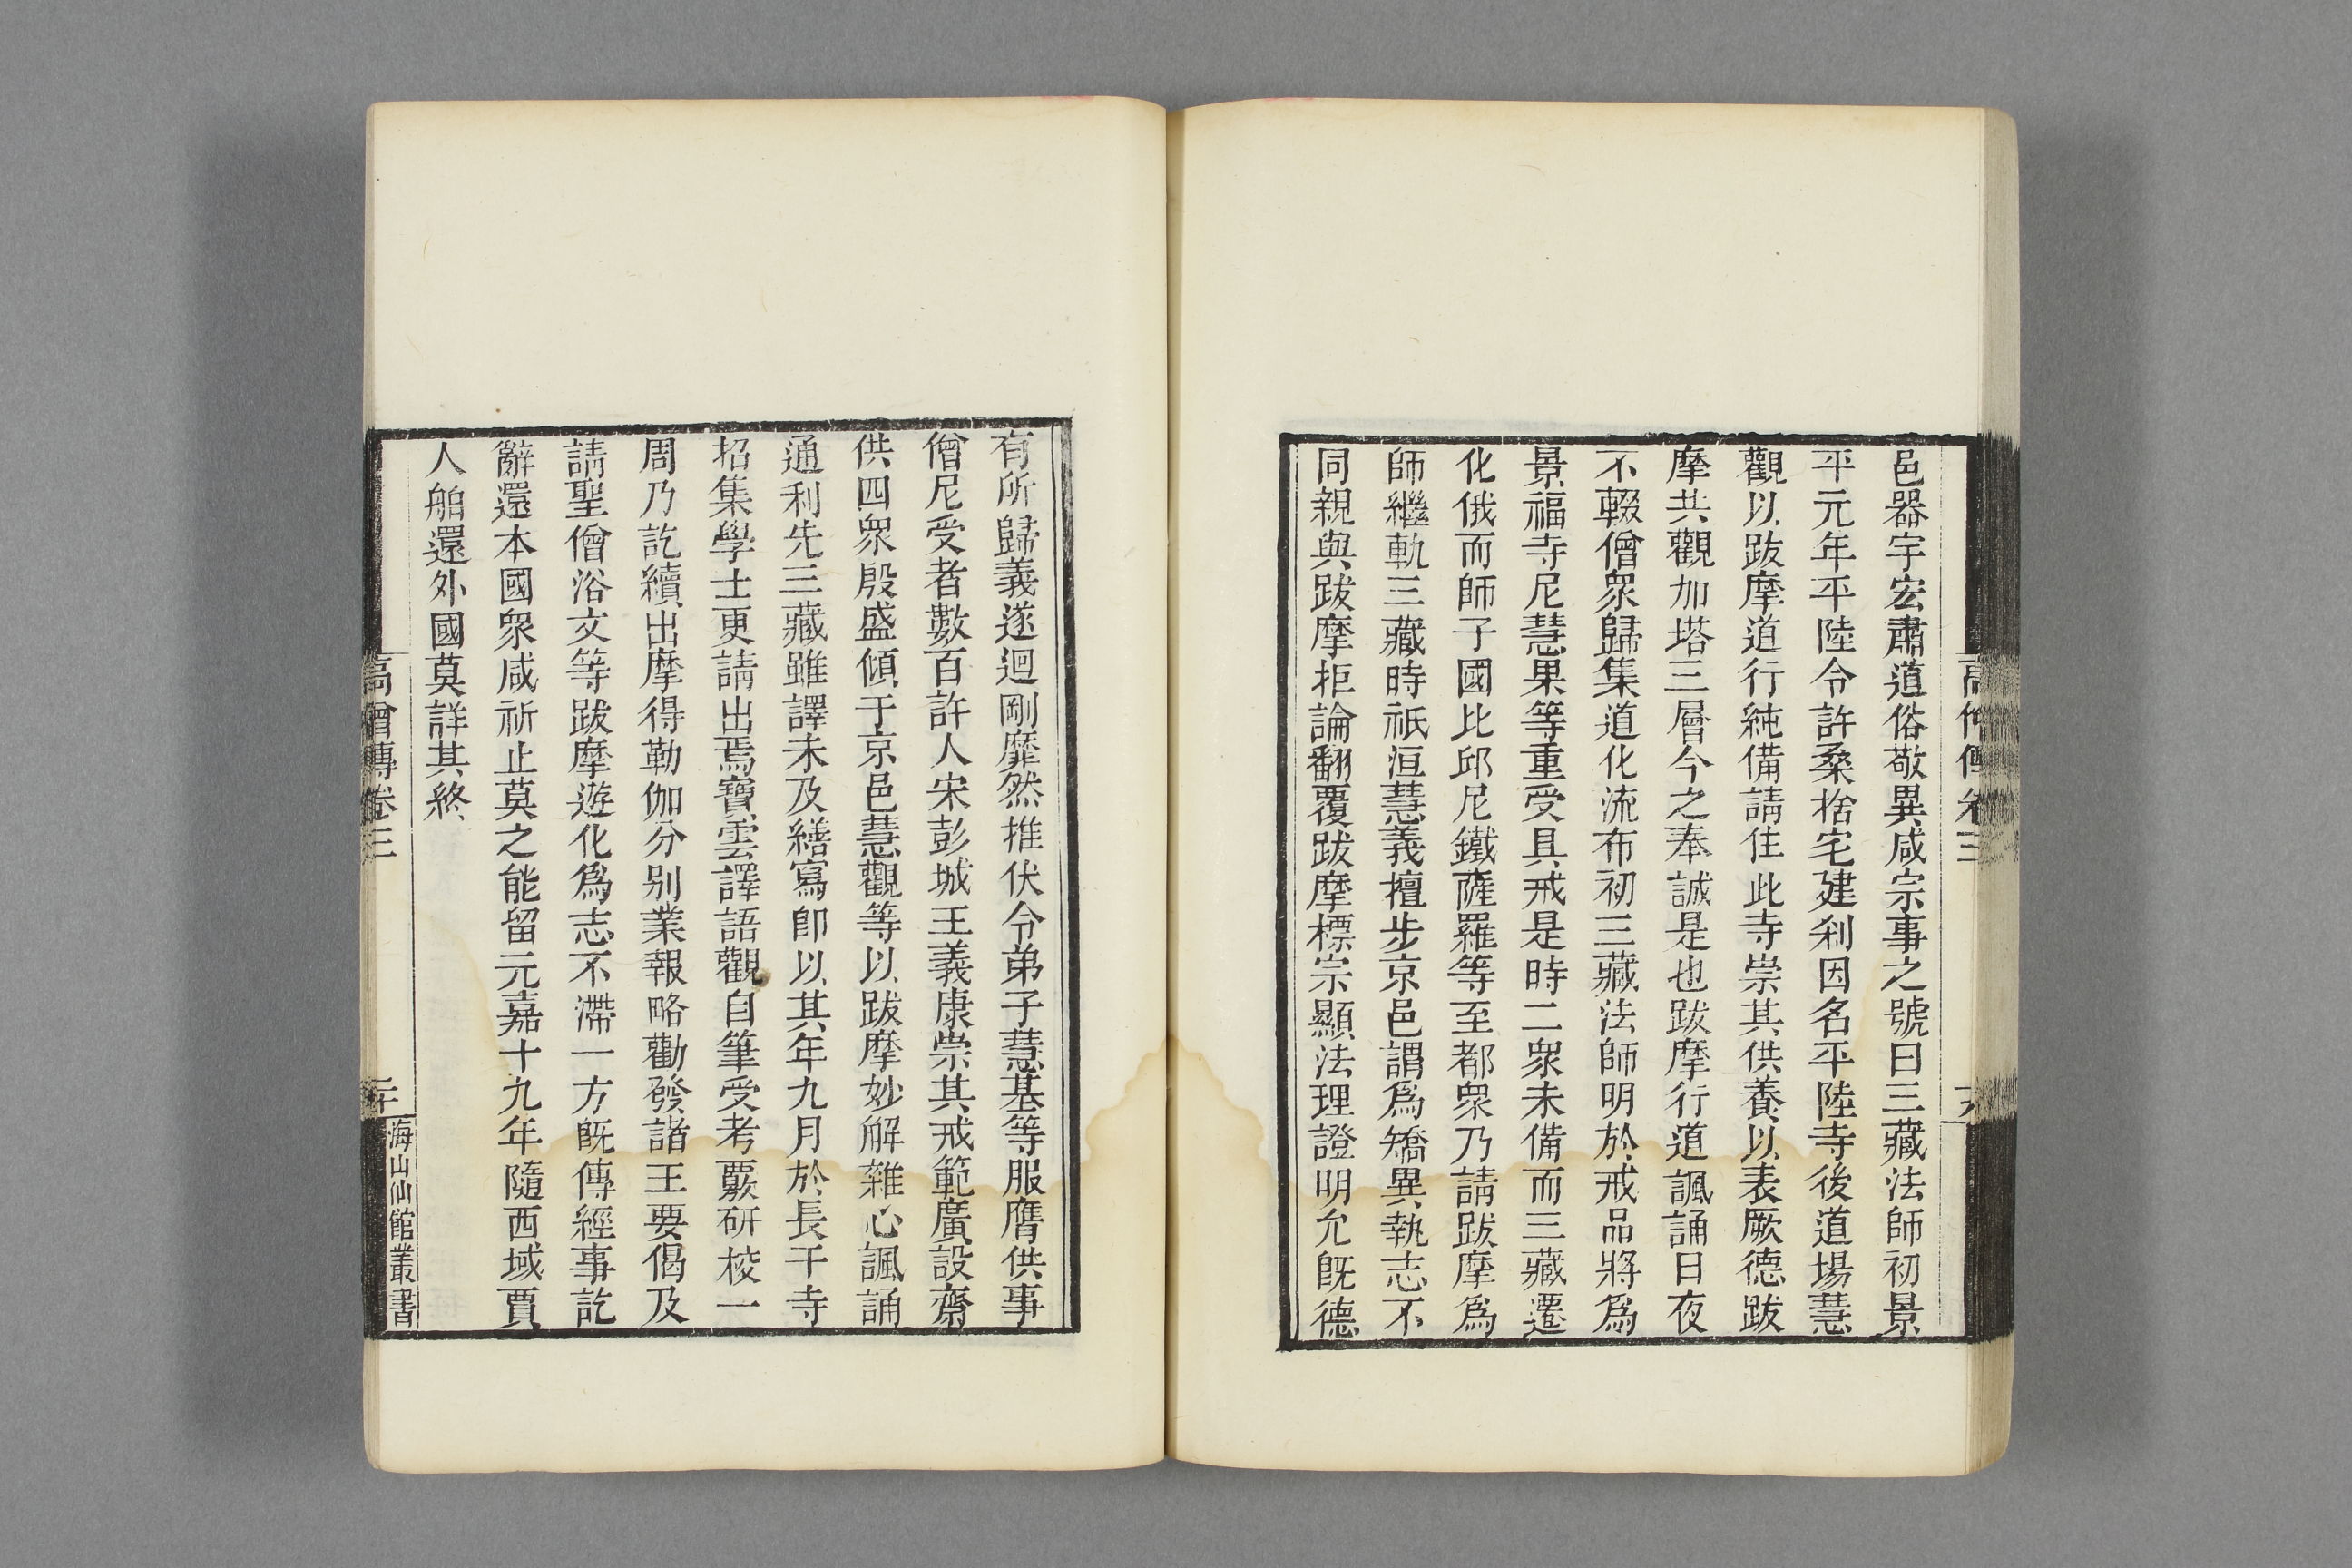 邑器宇宏肅道俗敬異咸宗事之號曰三藏法師初景
平元年平陸令許桑捨宅建刹因名平陸寺後道場慧
觀以跋摩道行純備請住此寺崇其供養以表厥德跋
摩共觀加塔三層今之奉誠是也跋摩行道諷誦日夜
不輟僧衆歸集道化流布初三藏法師明於戒品將爲
景福寺尼慧果等重受具戒是時二衆未備而三藏遷
化俄而師子國比邱尼鐵薩羅等至都衆乃請跋摩爲
師繼軌三藏時祇洹慧義擅步京邑謂爲矯異執志不
同親與跋摩拒論翻覆跋摩標宗顯法理證明允旣德
有所歸義遂迴剛靡然推伏令弟子慧基等服膺供事
僧尼受者數百許人宋彭城王義康崇其戒範廣設齋
供四衆殷盛傾于京邑慧觀等以跋摩妙解雜心諷誦
通利先三藏雖譯未及繕寫卽以其年九月於長干寺
招集學士更請出焉寶雲譯語觀自筆受考覈研校一
周乃訖續出摩得勒伽分别業報略勸發諸王要偈及
請聖僧浴文等跋摩遊化爲志不滯一方旣傳經事訖
辭還本國衆咸祈止莫之能留元嘉十九年隨西域賈
人舶還外國莫詳其終
高僧傳卷三
海山仙館叢書